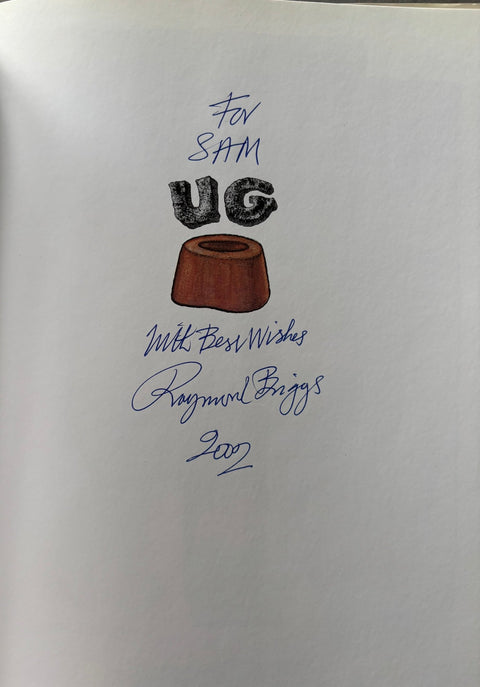 For
SAM
UG
With Best Wishes
Raymond Briggs
2002